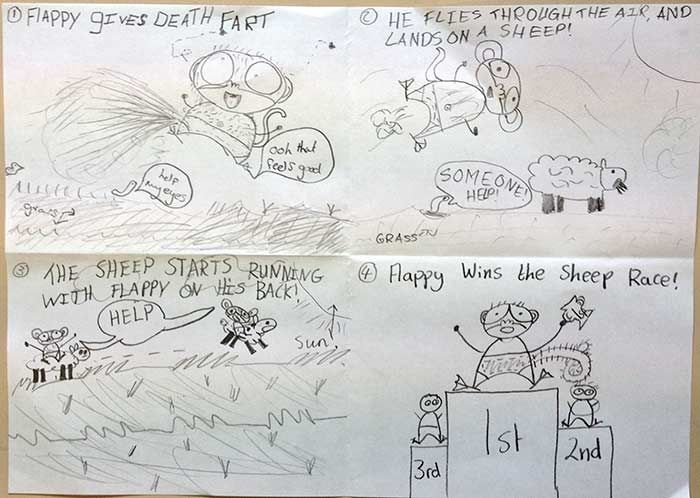 ① FLAPPY GIVES DEATH FART
ooh that
feels good
help
my eyes
grass
② HE FLIES THROUGH THE AIR, AND
LANDS ON A SHEEP!
SOMEONE!
HELP!
GRASS
③ THE SHEEP STARTS RUNNING
WITH FLAPPY ON HIS BACK!
HELP
Sun!
④ Flappy Wins the Sheep Race!
1st
2nd
3rd